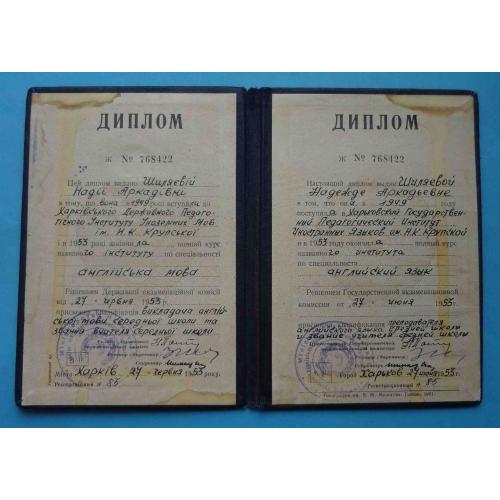 ДИПЛОМ
Ж № 768422
Цей диплом видано Шиляєвій
Надії Аркадіївні
в тому, що вона в 1949 році вступила до
Харківського Державного Педаго-
гічного Інституту Іноземних Мов
ім. Н.К. Крупської
і в 1953 році закінчила повний курс
названого інституту
по спеціальності
англійська мова
Рішенням Державної екзаменаційної комісії
від 27 червня 1953 р.
присвоєна кваліфікація викладача англій-
ської мови середньої школи та
звання вчителя середньої школи.
Місто Харків 27 червня 1953 року.
Реєстраційний № 85
ДИПЛОМ
Ж № 768422
Настоящий диплом выдан Шиляевой
Надежде Аркадьевне
в том, что она в 1949 году
поступила в Харьковский Государствен-
ный Педагогический Институт
Иностранных Языков им. Н.К. Крупской
и в 1953 году окончила полный курс
названного института
по специальности
английский язык
Решением Государственной экзаменационной
комиссии от 27 июня 1953 г.
присвоена квалификация преподавателя
английского языка средней школы
и звание учителя средней школы
Город Харьков 27 июня 1953 г.
Регистрационный № 85